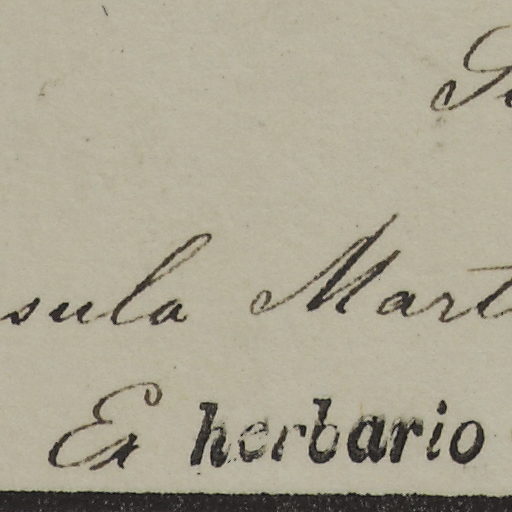 sula Mart
Ex herbario